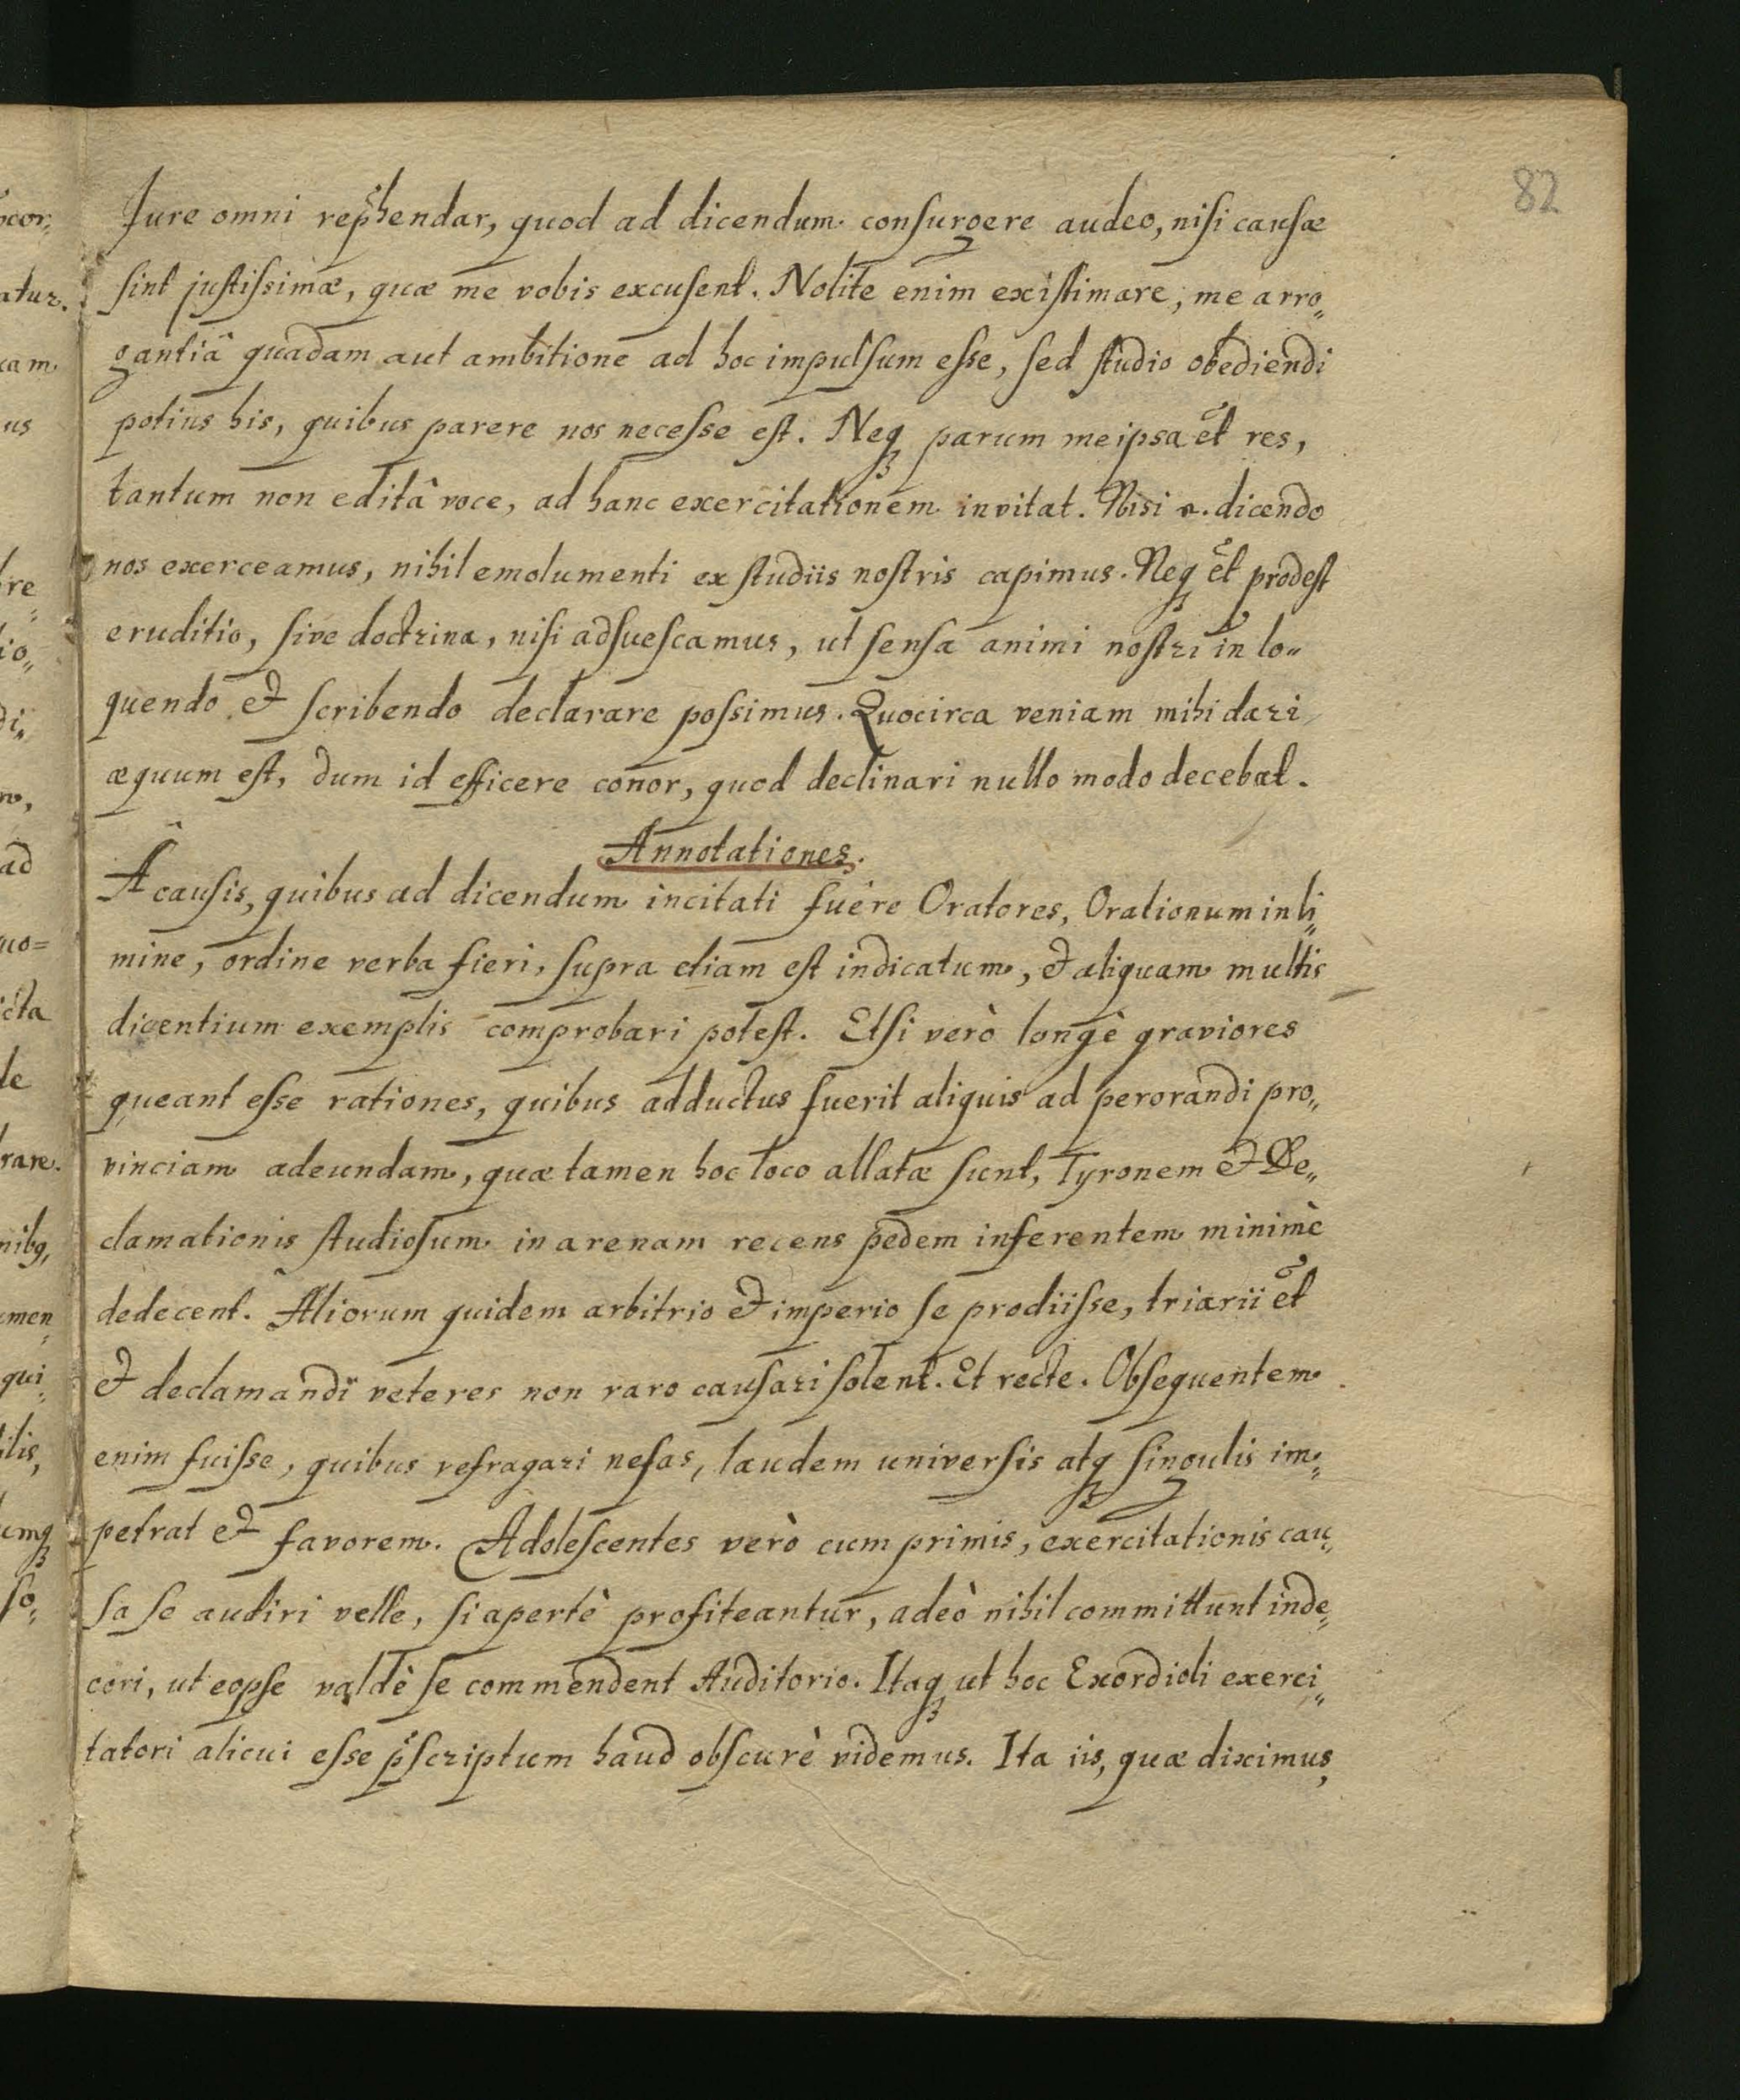 82
Jure omni rephendar, quod ad dicendum consurgere audeo, nisi causæ
sint justissimæ, quæ me vobis excusent. Nolite enim existimare, me arro„
gantiâ quadam aut ambitione ad hoc impulsum esse, sed studio obediendi
potius his, quibus parere nos necesse est. Neqꝫ parum me ipsa et̃ res,
tantum non editâ voce, ad hanc exercitationem invitat. Nisi n. dicendo
nos exerceamus, nihil emolumenti ex studiis nostris capimus. Neqꝫ et̃ prodest
eruditio, sive doctrina, nisi adsuescamus, ut sensa animi nostri in lo„
quendo & scribendo declarare possimus. Quocirca veniam mihi dari
æquum est, dum id efficere conor, quod declinari nullo modo decebat.
Annotationes.
Â causis, quibus ad dicendum incitati fuêre Oratores, Orationum in li„
mine, ordine verba fieri, supra etiam est indicatum, & aliquam multis
dicentium exemplis comprobari potest. Etsi verò longè graviores
queant esse rationes, quibus adductus fuerit aliquis ad perorandi pro„
vinciam adeundam, quæ tamen hoc loco allatæ sunt, Tyronem & De„
clamationis studiosum in arenam recens pedem inferentem minimè
dedecent. Aliorum quidem arbitrio & imperio se prodiisse, triarii et̃
& declamandi veteres non raro causari solent. Et recte. Obsequentem
enim fuisse, quibus refragari nefas, laudem universis atqꝫ singulis im„
petrat & favorem. Adolescentes verò cum primis, exercitationis cau„
sa se audiri velle, si apertè profiteantur, adeò nihil committunt inde„
cori, ut eopse valdè se commendent Auditorio. Itaqꝫ ut hoc Exordioli exerci„
tatori alicui esse p̃scriptum haud obscurè videmus. Ita iis, quæ diximus,